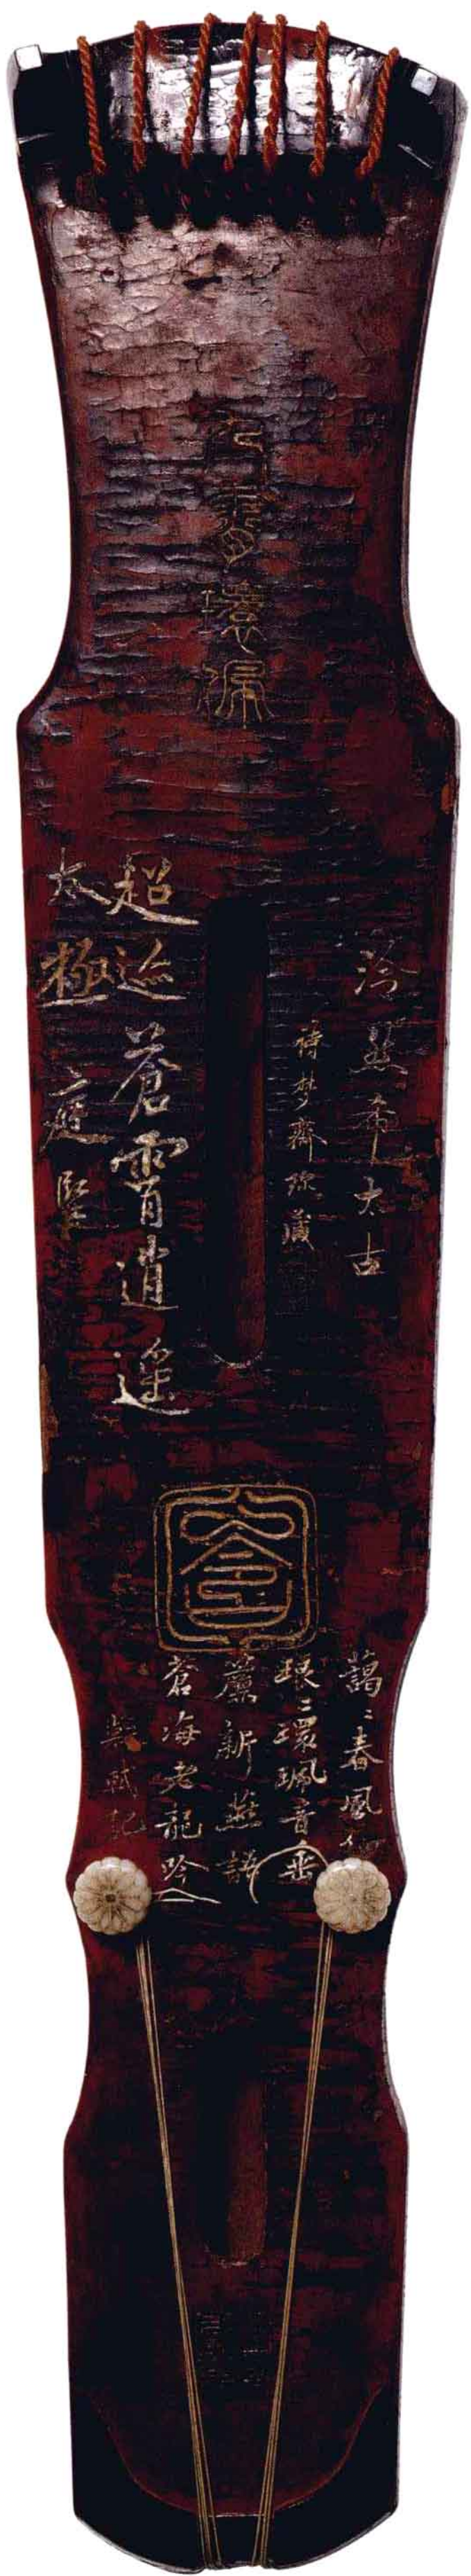 九霄環佩
泠然希太古
詩梦齋珍藏
超迹蒼霄逍遥
太極庭堅
包含
藹〻春風細
琅〻環珮音垂
簾新燕語
蒼海老龍吟
蘇軾記